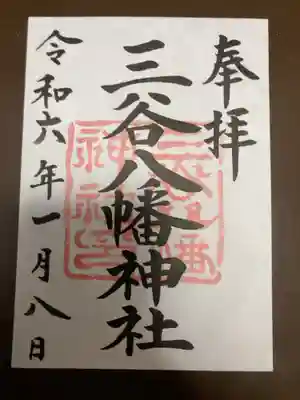 奉拝
三谷八幡神社
令和六年一月八日